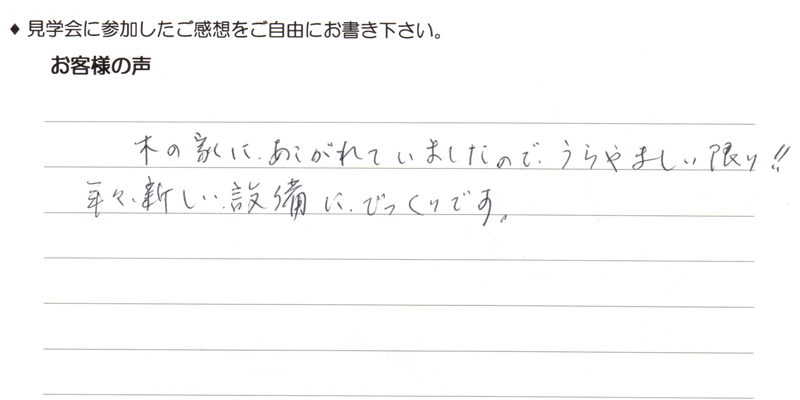 ◆ 見学会に参加したご感想をご自由にお書き下さい。
お客様の声
木の家に、あこがれていましたので、うらやましい限り!!
年々、新しい、設備に、びっくりです。